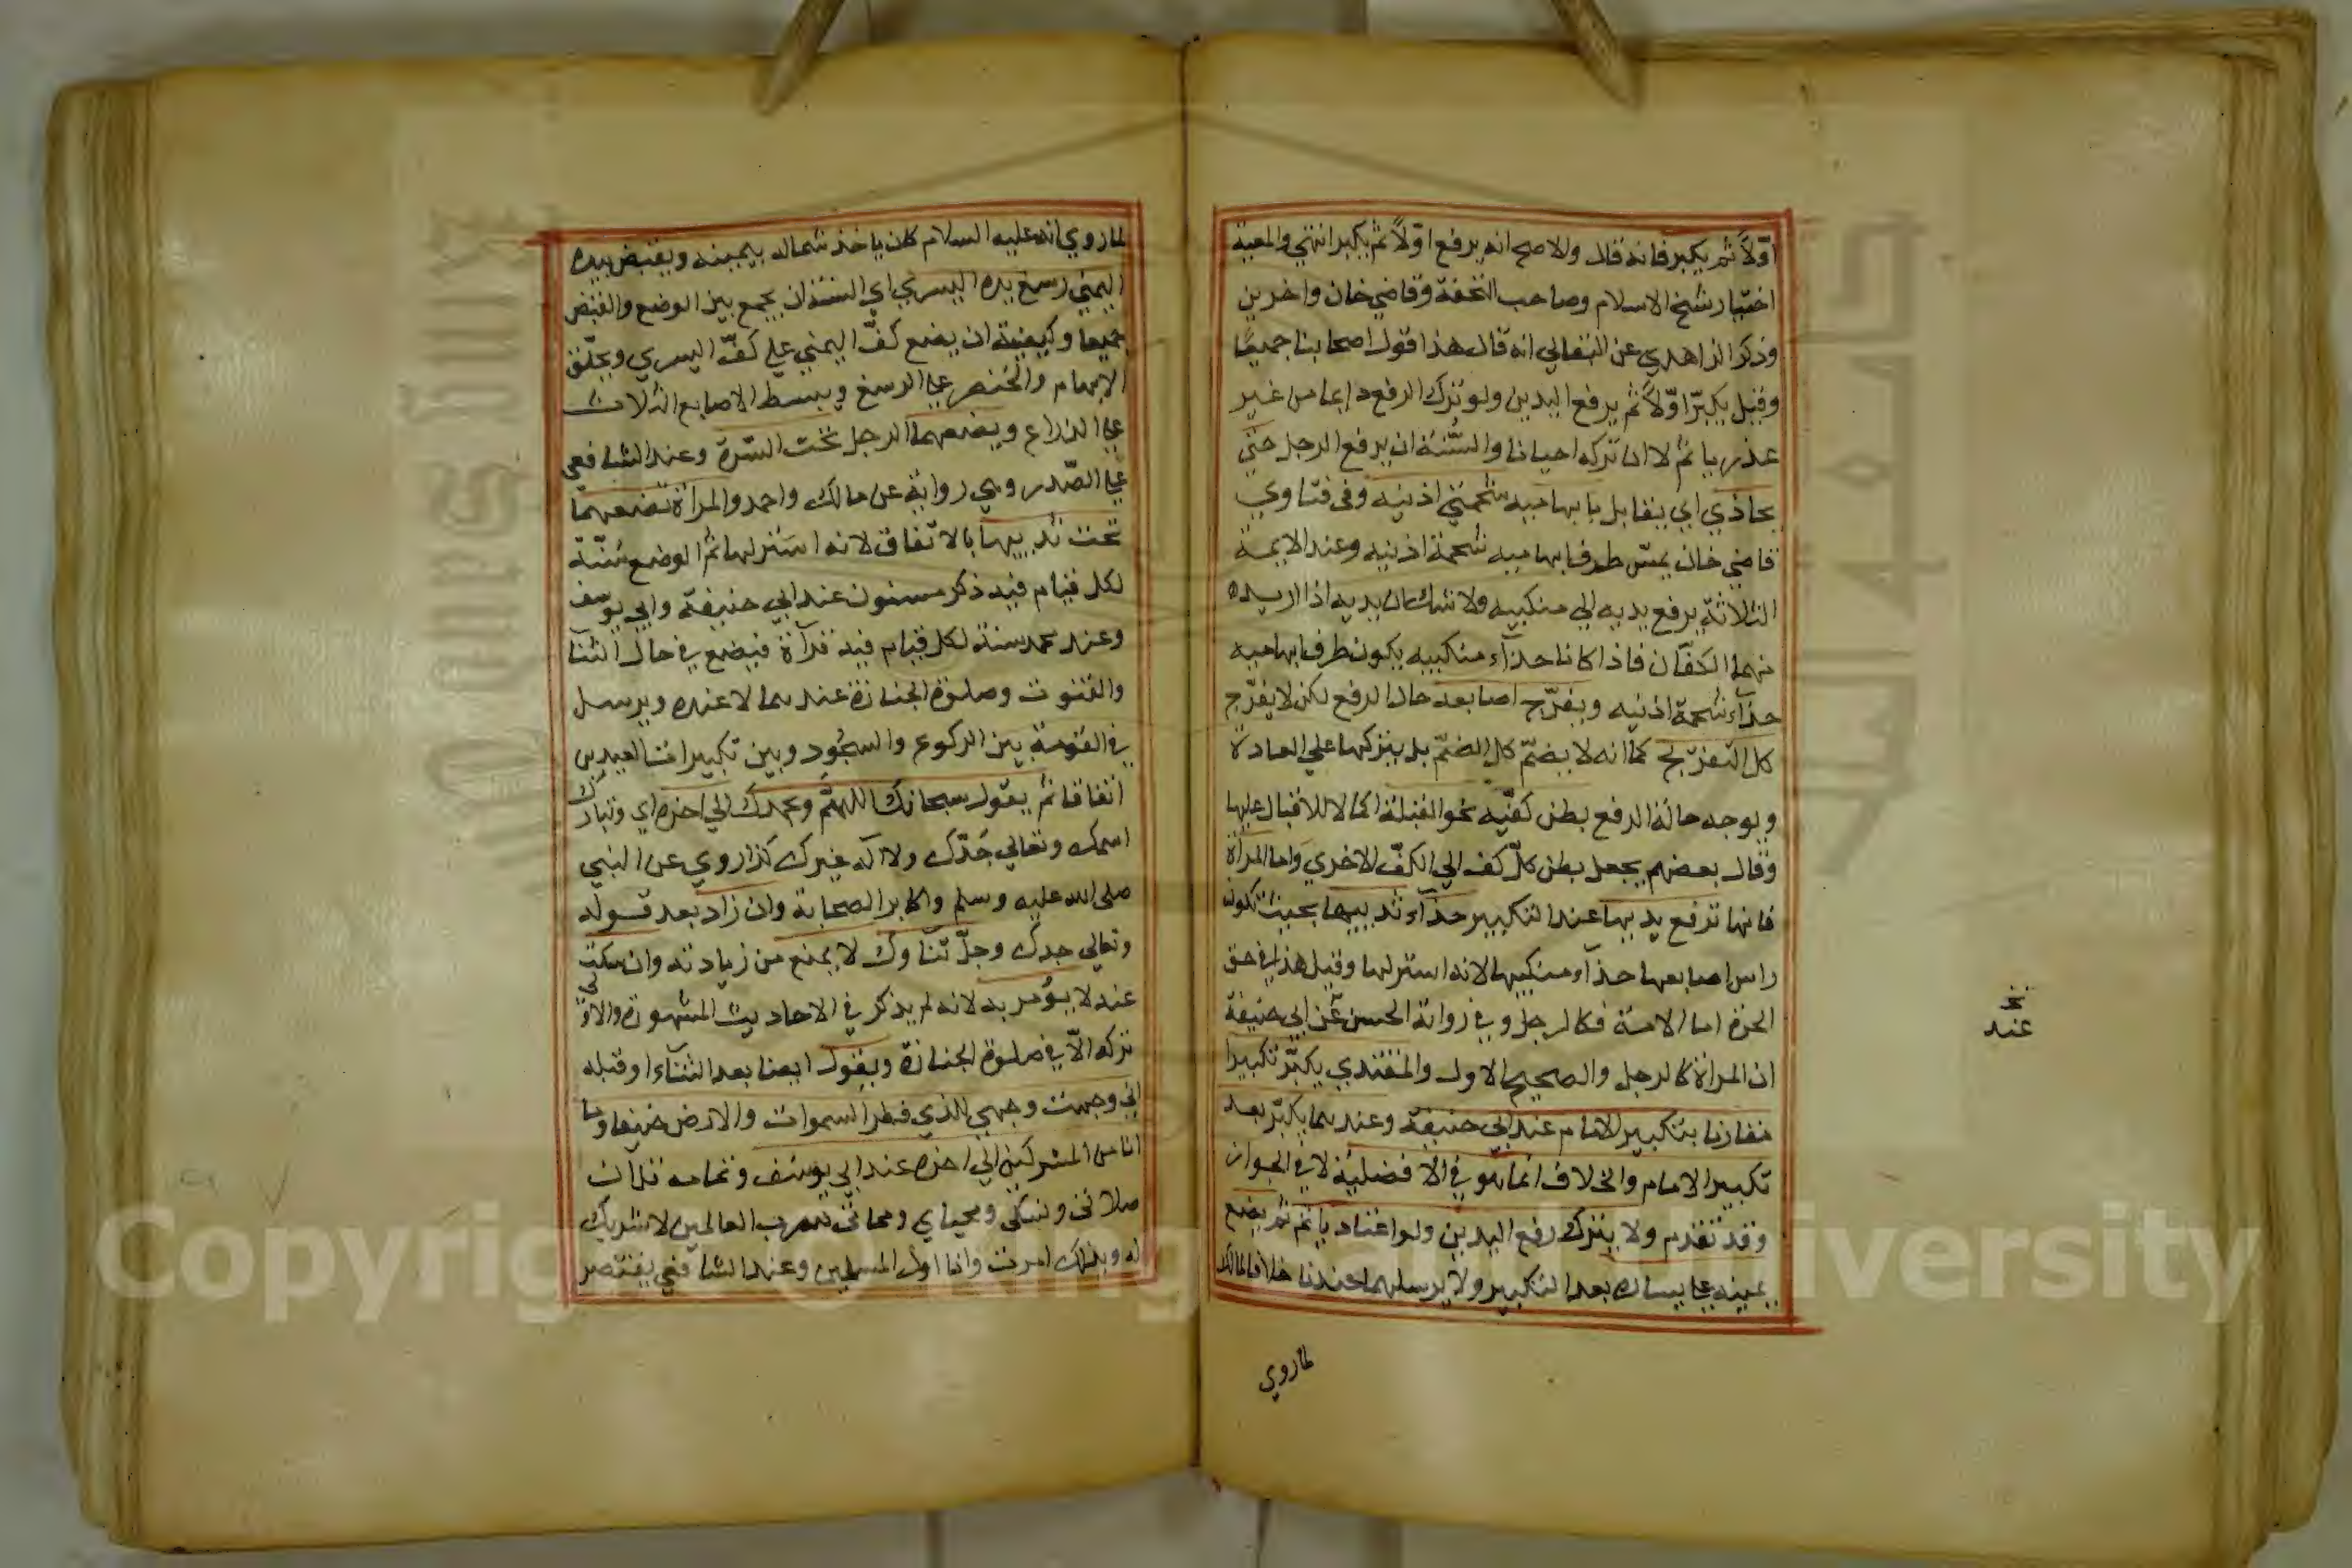 اوّلاً ثم يكبر فانه قال والاصح انه يرفع اوّلاً ثم يكبر انتهي والمعية
اختيار شيخ الاسلام وصاحب التحفة وقاضي خان واخرين
وذكر الزاهدي عن البقالي انه قال هذا قول اصحابنا جميعًا
وقيل يكبّر اوّلاً ثم يرفع اليدين ولو ترك الرفع دايما من غير
عذر ياثم لا ان تركه احيانا والسُّنة ان يرفع الرجل حتّي
يحاذي اي يقابل بابهاميه شحمتي اذنيه وفي فتاوي
قاضي خان يمسّ طرف ابهاميه شحمة اذنيه وعند الايمة
الثلاثة يرفع يديه الي منكبيه ولا شك ان يديه اذا اريد
منهما الكفّان فاذا كانا حذآء منكبيه يكون طرف ابهاميه
حذآء شحمة اذنيه ويفرّج اصابعه حال الرفع لكن لا يفرّج
كل التفريج كما انه لا يضمّ كل الضمّ بل يتركها علي العادة
ويوجه حالة الرفع بطن كفّيه نحو القبلة اكمالا للاقبال عليها
وقال بعضهم يجعل بطن كلّ كف الي الكفّ الاخري واما المرأة
فانها ترفع يديها عند التكبير حذآء ثدييها بحيث تكون
راس اصابعها حذآء منكبيها لانه استر لها وقيل هذا في حق
الحرة اما الامة فكالرجل وفي رواية الحسن عن ابي حنيفة
ان المراة كالرجل والصحيح الاول والمقتدي يكبّر تكبيرا
مقارنا بتكبير الامام عند ابي حنيفة وعندهما يكبّر بعد
تكبير الامام والخلاف انما هو في الافضلية لا في الجواز
وقد تقدم ولا يترك رفع اليدين ولو اعتاد ياثم ثم يضع
يمينه علي يساره بعد التكبير ولا يرسلهما عندنا خلافا لمالك
لماروي
نخ
عند
لماروي انه عليه السلام كان ياخذ شماله بيمينه ويقبض بيده
اليمني رسغ يده اليسري اي السنة ان يجمع بين الوضع والقبض
جميعا وكيفية ان يضع كفّ اليمني علي كفّ اليسري ويحلّق
الابهام والخنصر علي الرسغ ويبسط الاصابع الثلاث
علي الذراع ويضعهما الرجل تحت السّرة وعند الشافعي
علي الصّدر وهي رواية عن مالك واحمد والمراة تضعهما
تحت ثدييها بالاتفاق لانه استر لها ثم الوضع سُنّة
لكل قيام فيه ذكر مسنون عند ابي حنيفة وابي يوسف
وعند محمد سنة لكل قيام فيه قرآة فيضع في حال الثنا
والقنوت وصلوة الجنازة عندهما لا عنده ويرسل
في القومة بين الركوع والسجود وبين تكبيرات العيدين
اتفاقا ثم يقول سبحانك اللهمّ وبحمدك الي اخره اي وتبارك
اسمك وتعالي جَدّك ولا اله غيرك كذا روي عن النبي
صلى الله عليه وسلم واكابر الصحابة وان زاد بعد قوله
وتعالي جدك وجلّ ثناوك لا يمنع من زيادته وان سكت
عنه لا يؤمر به لانه لم يذكر في الاحاديث المشهورة والاولى
تركه الاّ في صلوة الجنازة ويقول ايضا بعد الثنآء او قبله
اني وجهت وجهي للذي فطر السموات والارض حنيفا وما
انا من المشركين الي اخره عند ابي يوسف وتمامه ان
صلاتي ونسكي ومحياي ومماتي لله رب العالمين لا شريك
له وبذلك امرت وانا اول المسلمين وعند الشافعي يقتصر